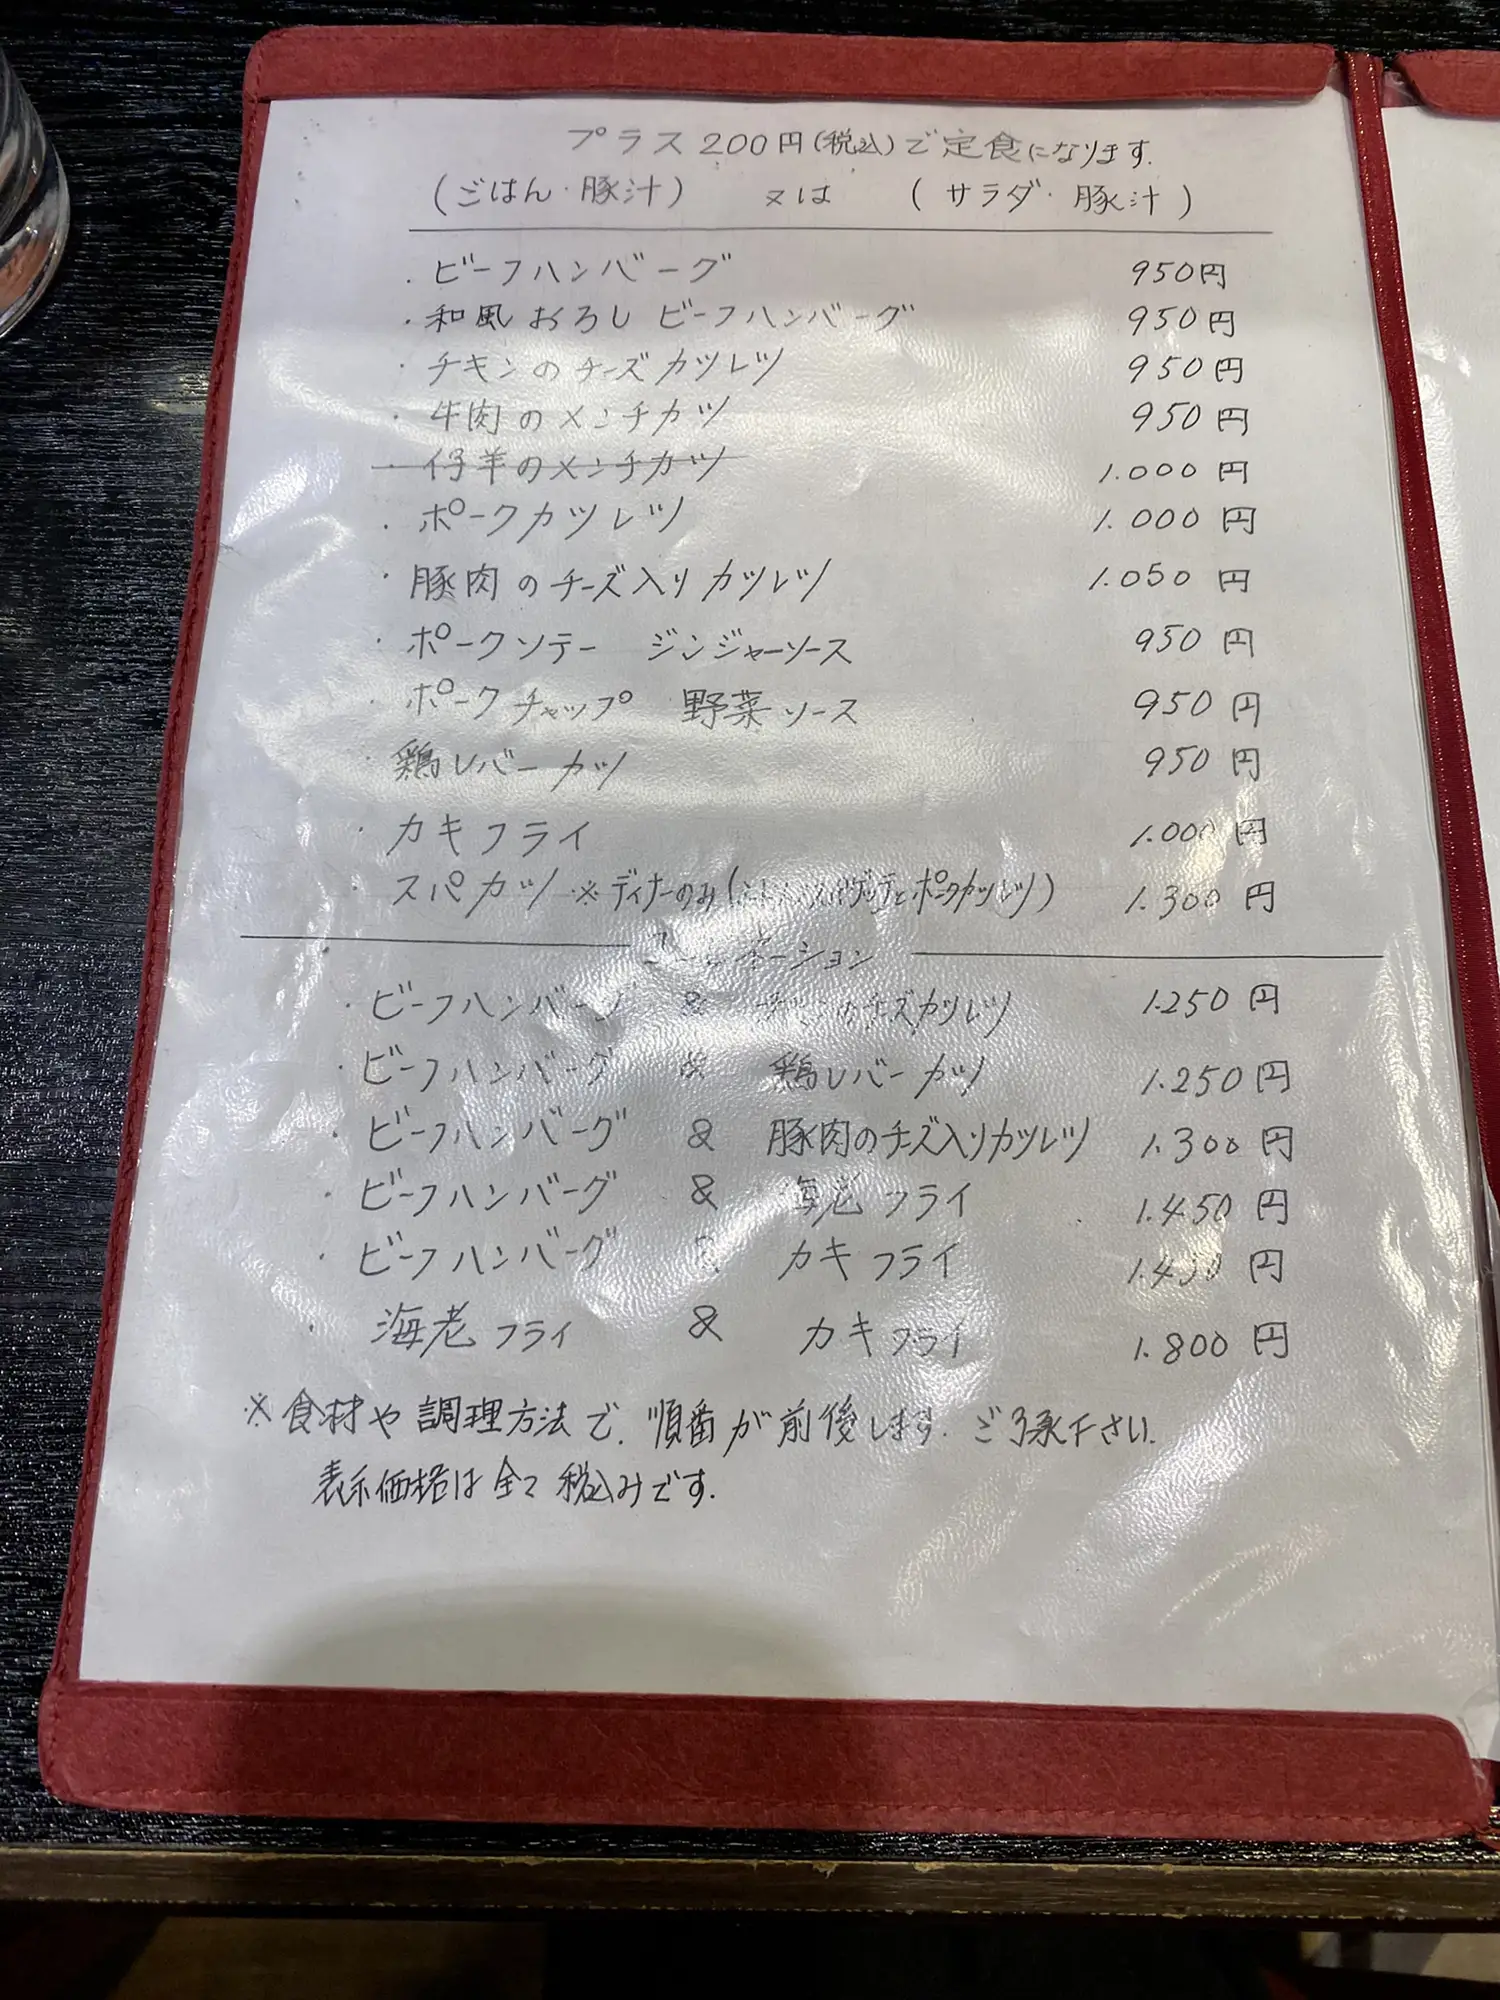 プラス200円(税込)で定食になります.
(ごはん・豚汁) 又は (サラダ・豚汁)
・ビーフハンバーグ 950円
・和風おろしビーフハンバーグ 950円
・チキンのチーズカツレツ 950円
・牛肉のメンチカツ 950円
・仔羊のメンチカツ 1.000円
・ポークカツレツ 1.000円
・豚肉のチーズ入りカツレツ 1.050円
・ポークソテー ジンジャーソース 950円
・ポークチャップ 野菜ソース 950円
・鶏レバーカツ 950円
・カキフライ 1.000円
・スパカツ ※ディナーのみ( とポークカツレツ) 1.300円
コンビネーション
・ビーフハンバーグ & チキンのチーズカツレツ 1.250円
・ビーフハンバーグ & 鶏レバーカツ 1.250円
・ビーフハンバーグ & 豚肉のチーズ入りカツレツ 1.300円
・ビーフハンバーグ & 海老フライ 1.450円
・ビーフハンバーグ & カキフライ 1.450円
・海老フライ & カキフライ 1.800円
※食材や調理方法で、順番が前後します. ご了承下さい.
表示価格は全て税込みです.